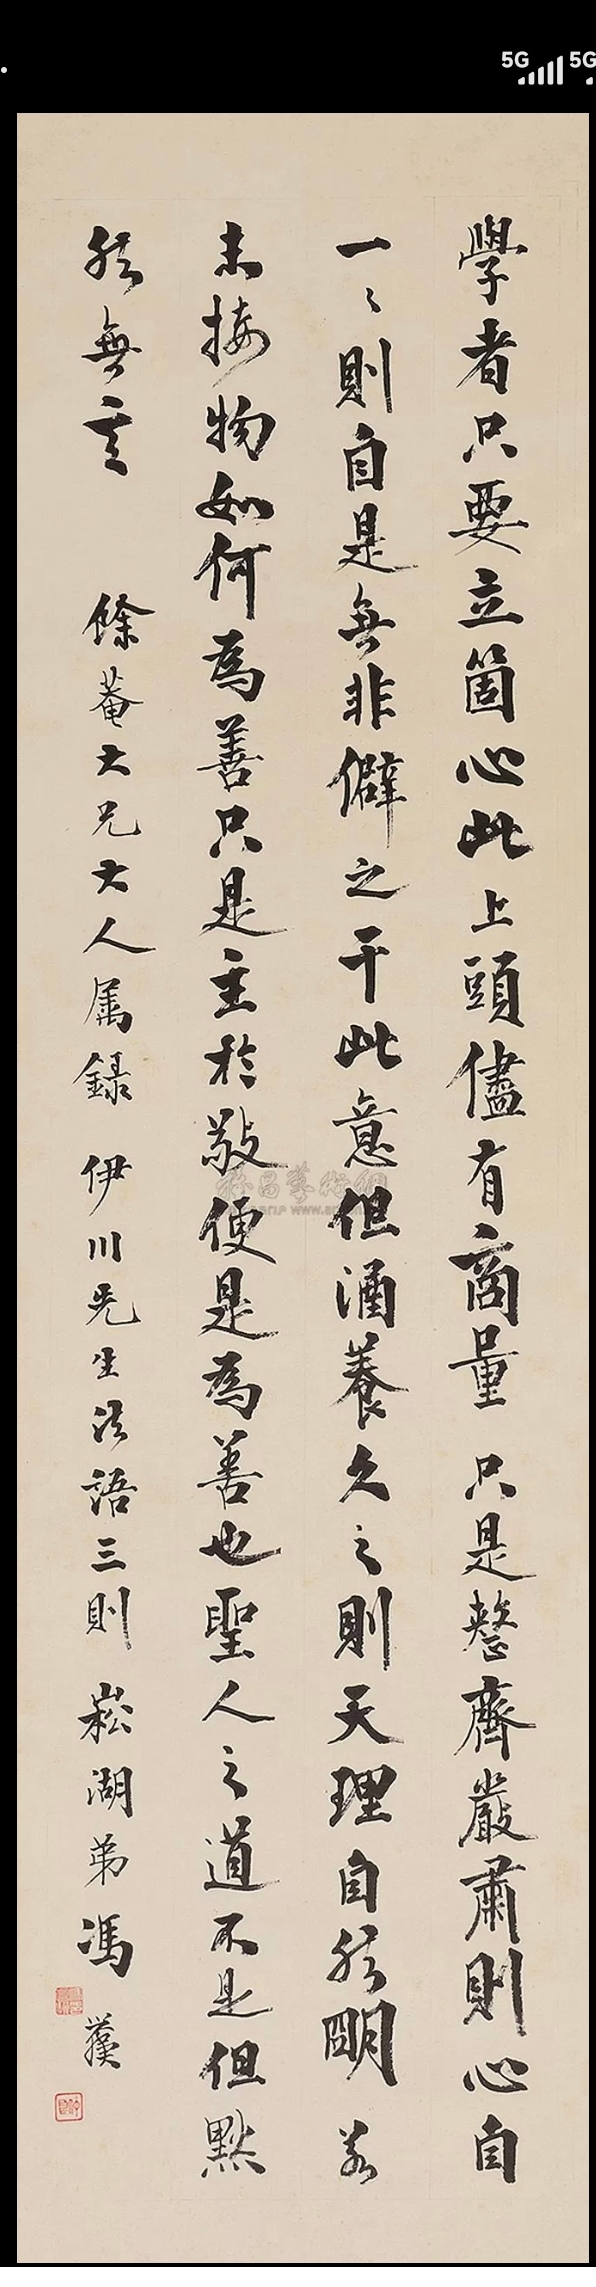 5G 5G
學者只要立箇心此上頭儘有商量 只是整齊嚴肅則心自
一〻則自是無非僻之干此意但涵養久之則天理自然朙 若
未接物如何為善只是主於敬便是為善也聖人之道不是但默
然無言 餘菴大兄大人属錄 伊川先生法語三則 崧湖弟馮
雅昌藝術網